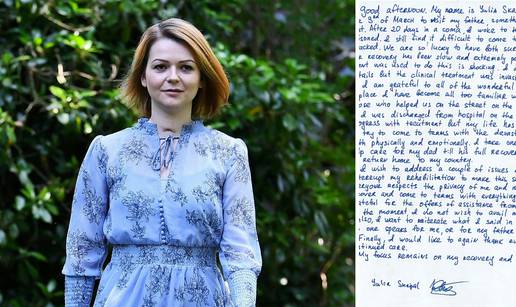 good afternoon. My name is Yulia Skr
of March to visit my father, someth
it. After 20 days in a coma, I woke to th
soned. I still find it difficult to come t
acked. We are so lucky to have both sur
recovery has been slow and extremely pa
ent was used to do this is shocking. I
tails but the clinical treatment was invas
I am grateful to all of the wonderful
place I have become all too familiar w
ose who helped us on the street on the
I was discharged from hospital on the
ogress with treatment but my life has
try to come to terms with the devast
th physically and emotionally. I take one
p care for my dad till his full recover
return home to my country.
I wish to address a couple of issues
terrupt my rehabilitation to make this s
eryone respects the privacy of me and m
cover and come to terms with everything
teful for the offers of assistance from
the moment I do not wish to avail m
lso, I want to reiterate what I said in
one speaks for me, or for my father
Finally, I would like to again thank
ntinued care.
My focus remains on my recovery and
Yulia Skripal